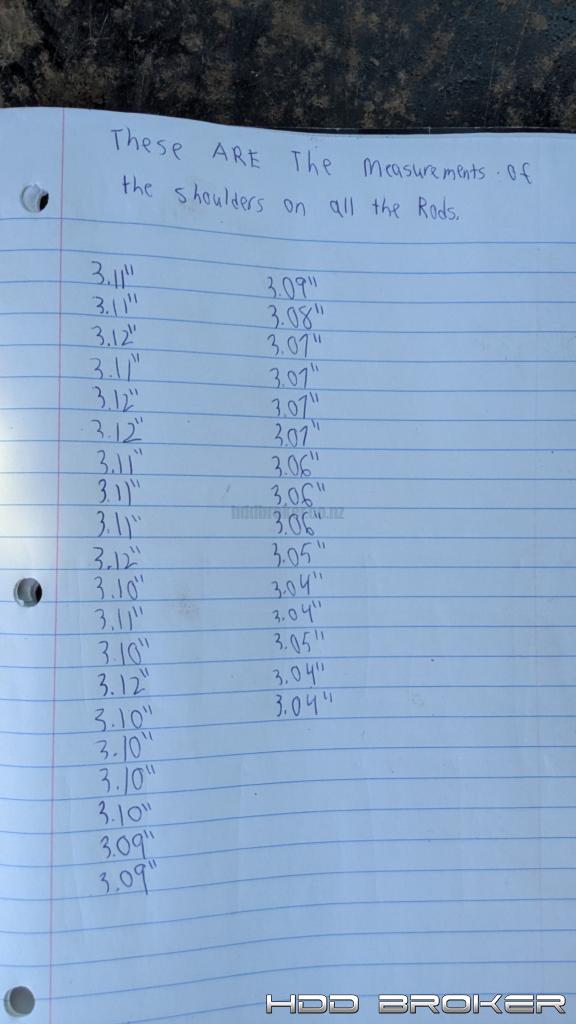 These ARE The Measurements of
the shoulders on all the Rods.
3.11"
3.11"
3.12"
3.11"
3.12"
3.12"
3.11"
3.11"
3.11"
3.12"
3.10"
3.11"
3.10"
3.12"
3.10"
3.10"
3.10"
3.10"
3.09"
3.09"
3.09"
3.08"
3.07"
3.07"
3.07"
3.07"
3.06"
3.06"
3.06
3.05"
3.04"
3.04"
3.05"
3.04"
3.04"
hddbroker.co.nz
HDD BROKER